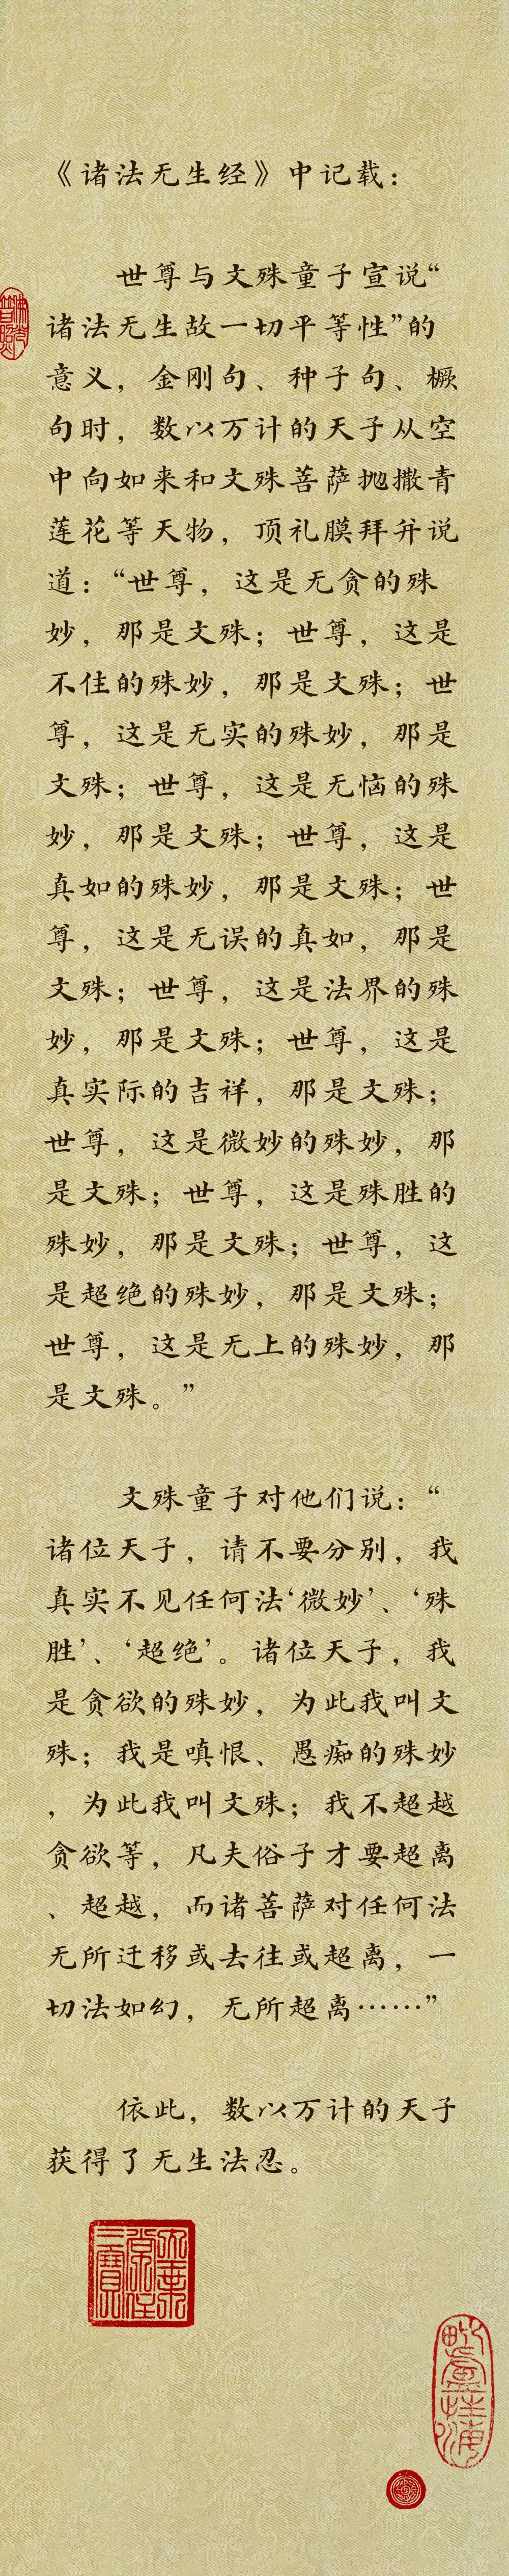 《诸法无生经》中记载：
世尊与文殊童子宣说“
诸法无生故一切平等性”的
意义，金刚句、种子句、橛
句时，数以万计的天子从空
中向如来和文殊菩萨抛撒青
莲花等天物，顶礼膜拜并说
道：“世尊，这是无贪的殊
妙，那是文殊；世尊，这是
不住的殊妙，那是文殊；世
尊，这是无实的殊妙，那是
文殊；世尊，这是无恼的殊
妙，那是文殊；世尊，这是
真如的殊妙，那是文殊；世
尊，这是无误的真如，那是
文殊；世尊，这是法界的殊
妙，那是文殊；世尊，这是
真实际的吉祥，那是文殊；
世尊，这是微妙的殊妙，那
是文殊；世尊，这是殊胜的
殊妙，那是文殊；世尊，这
是超绝的殊妙，那是文殊；
世尊，这是无上的殊妙，那
是文殊。”
文殊童子对他们说：“
诸位天子，请不要分别，我
真实不见任何法‘微妙’、‘殊
胜’、‘超绝’。诸位天子，我
是贪欲的殊妙，为此我叫文
殊；我是嗔恨、愚痴的殊妙
，为此我叫文殊；我不超越
贪欲等，凡夫俗子才要超离
、超越，而诸菩萨对任何法
无所迁移或去往或超离，一
切法如幻，无所超离……”
依此，数以万计的天子
获得了无生法忍。